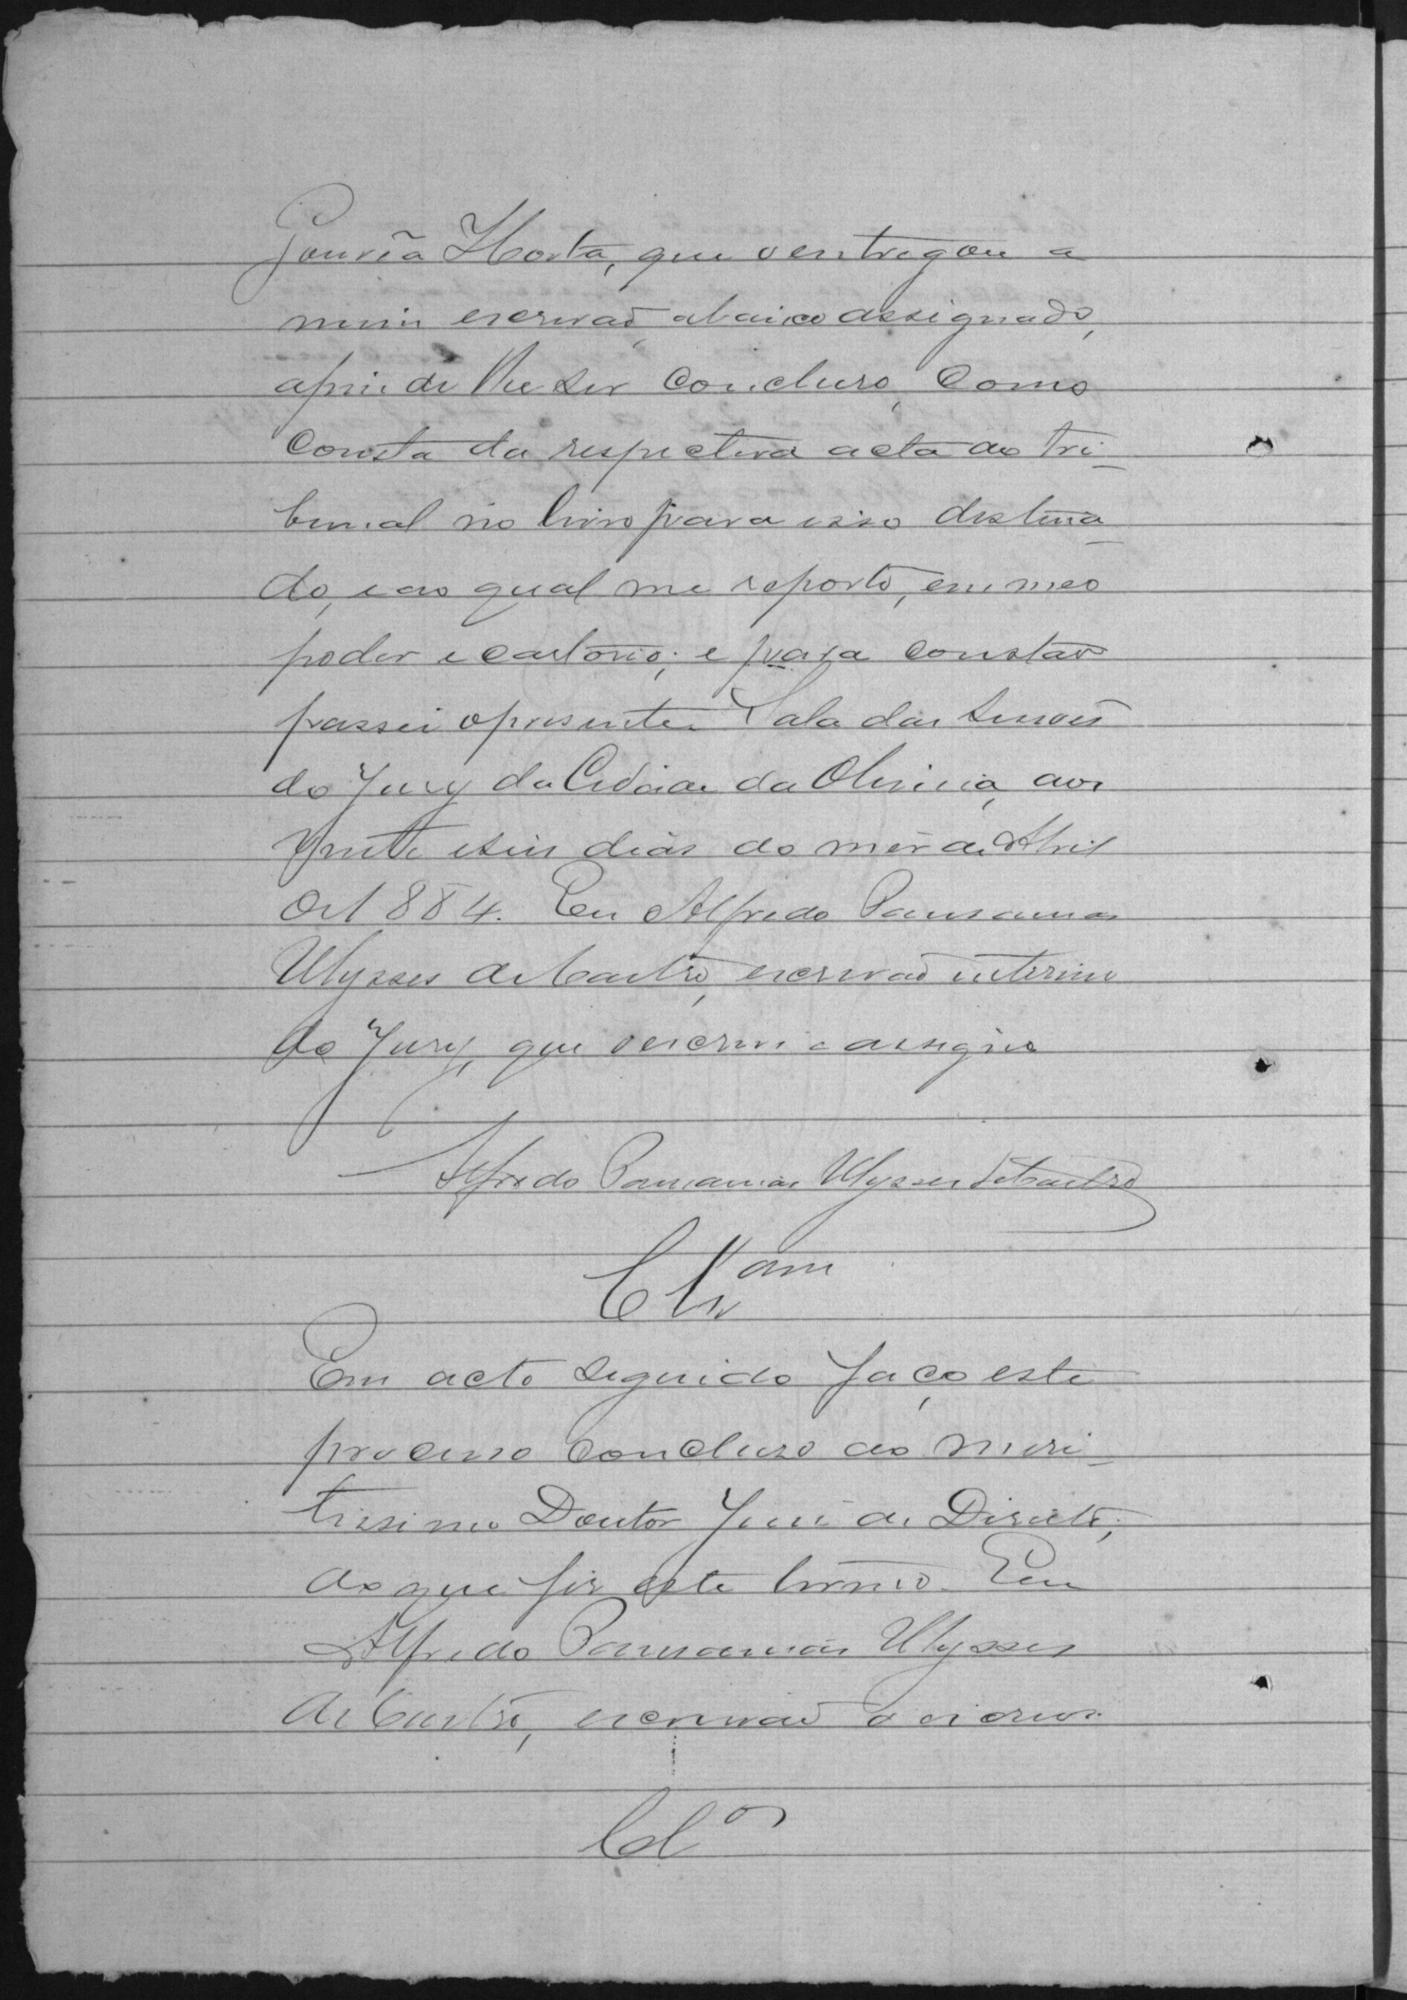 Gouvêa Horta, que o entregou a
mim escrivaõ abaixo assignado,
afim de lhe ser concluso, como
consta da respectiva acta do tri-
bunal no livro para isso destina-
do, e ao qual me reporto, em meo
poder e cartorio; e para constar
passei o presente. Sala das Sessoẽs
do Jury da Cidade da Oliveira, aos
vinte e seis dias do mez de Abril
de 1884. Eu Alfredo Pausanias
Ulysses de Castro, escrivaõ interino
do Jury, que o escrevi e assigno
Alfredo Pausanias Ulysses de Castro
Clsam
Em acto seguido faço este
processo concluso ao meri-
tissimo Doutor Juiz de Direito;
do que fiz este termo. Eu
Alfredo Pausanias Ulysses
de Castro, escrivaõ o escrevi.
Clos